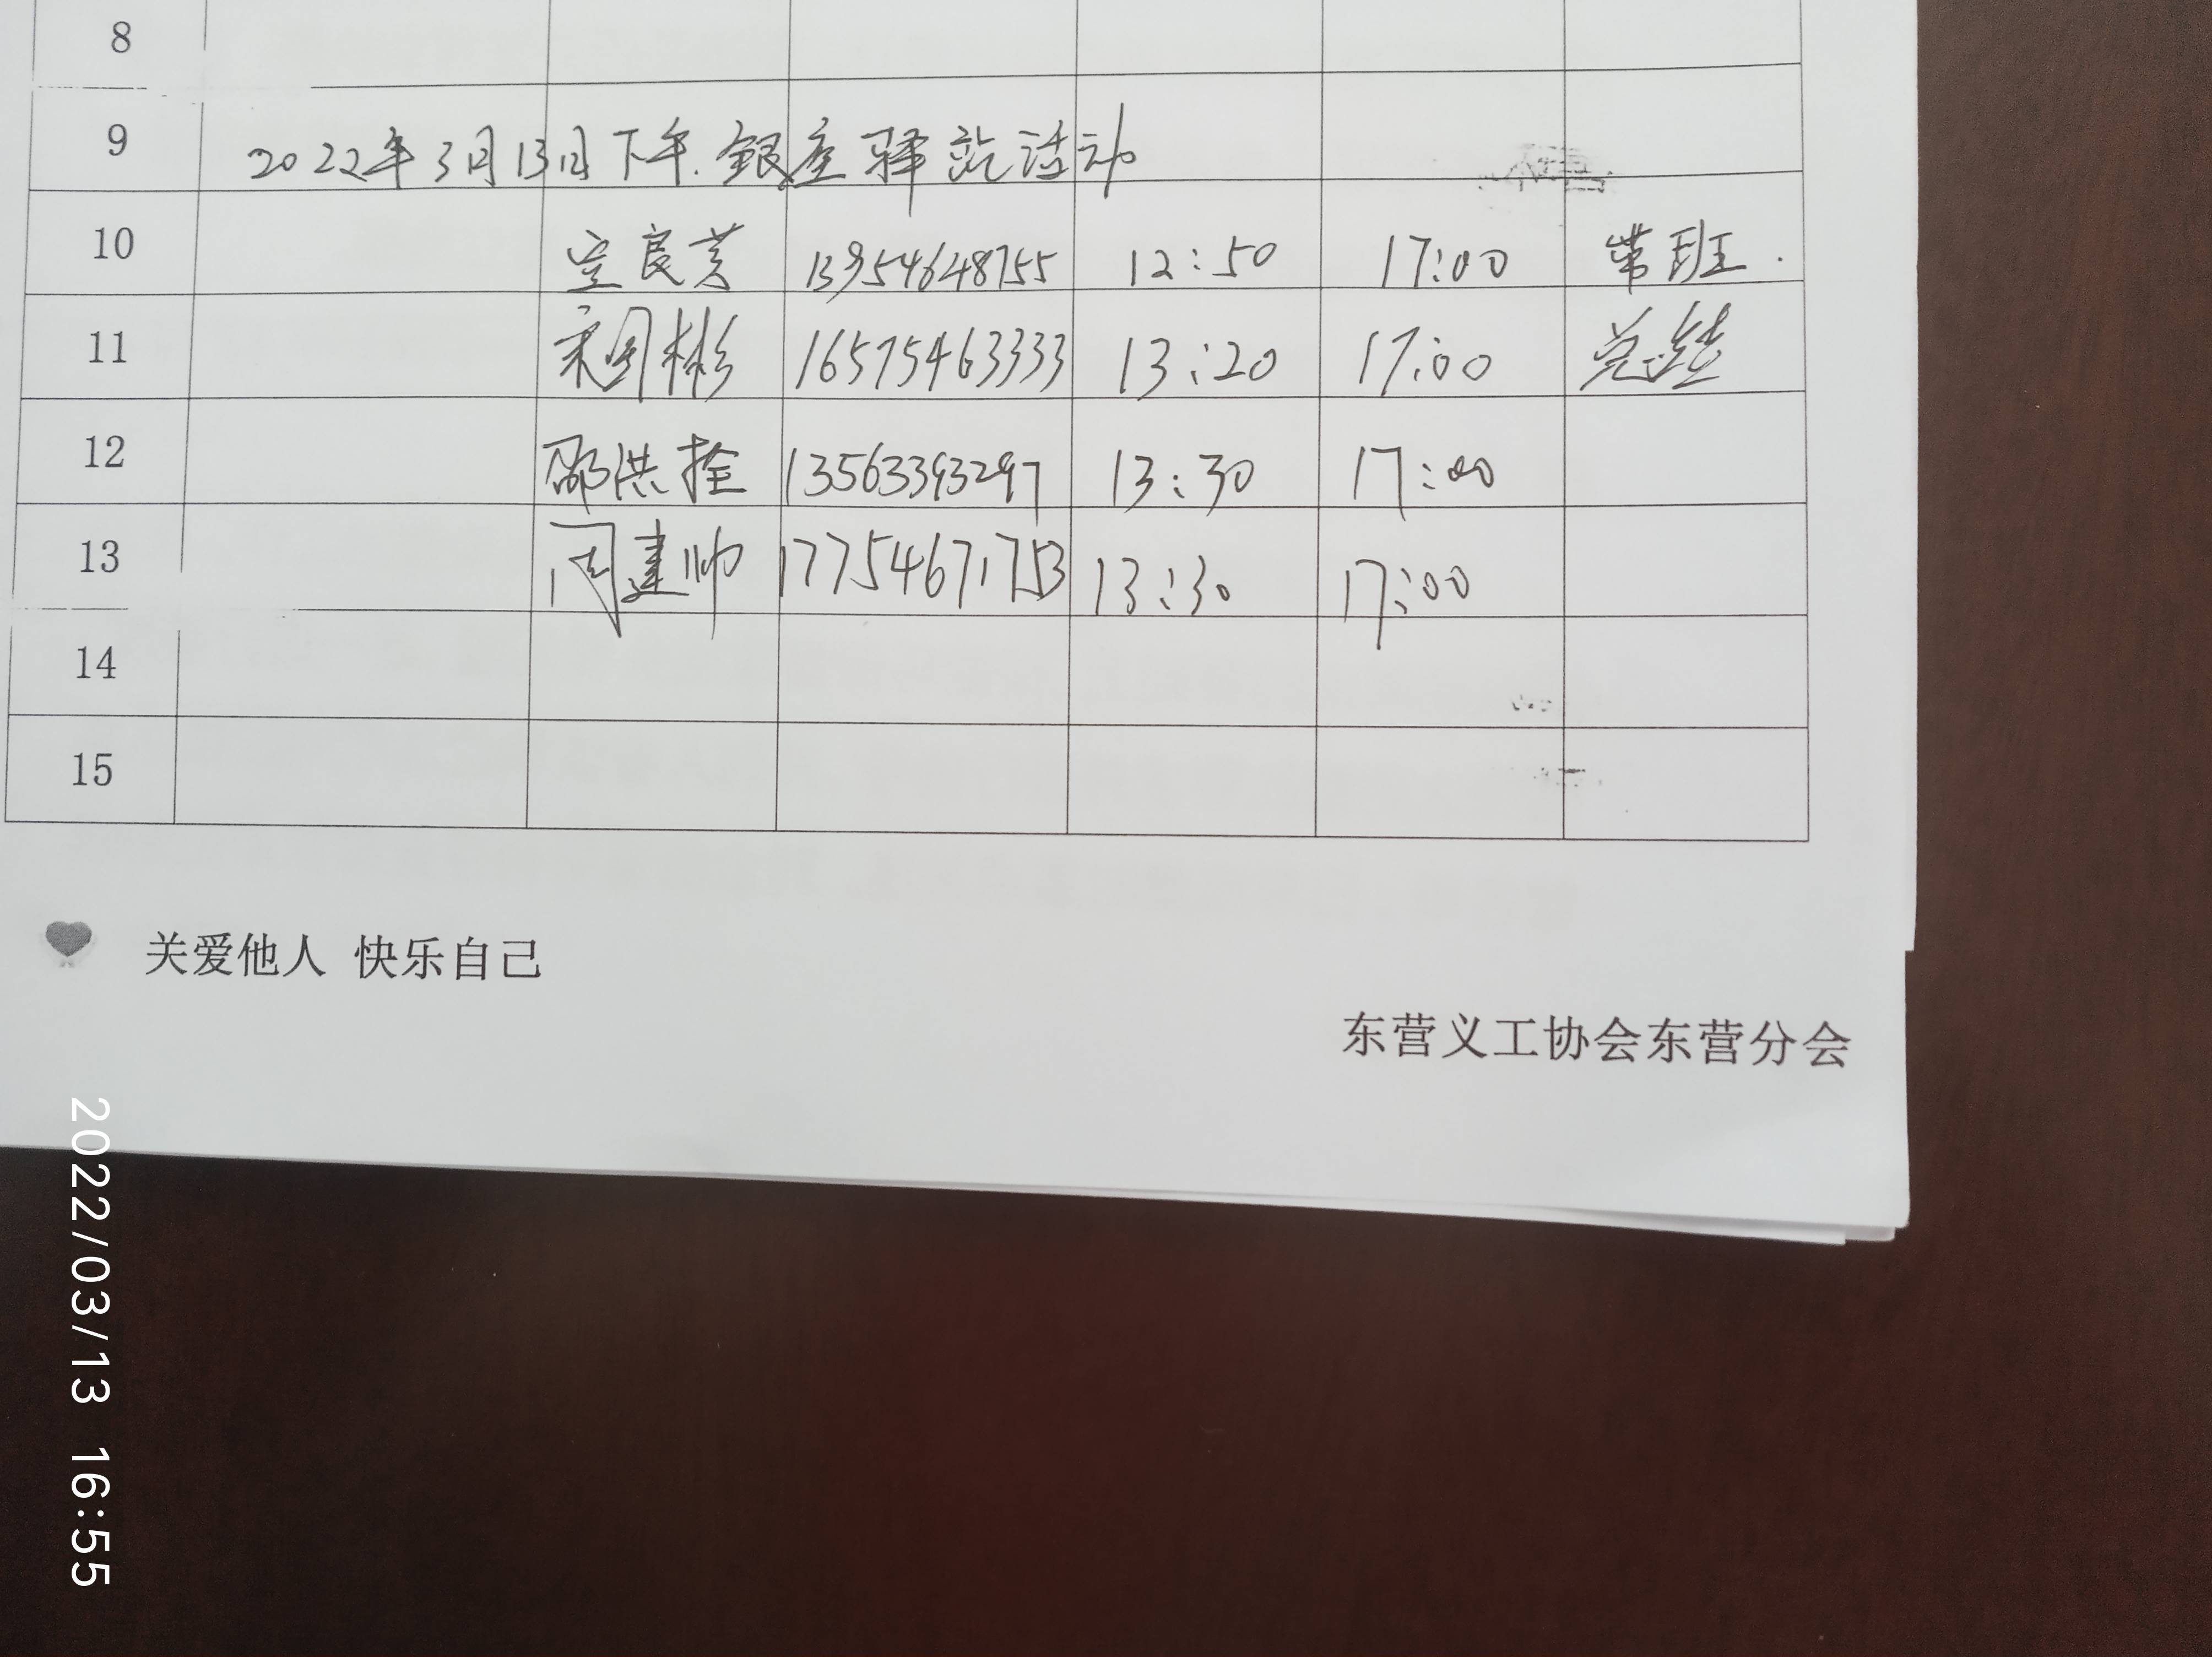 8
9 2022年3月13日下午.銀座驿站活动
10 宝良芙 13954648755 12:50 17:00 带班.
11 宋国彬 16575463333 13:20 17:00 总结
12 邵洪拴 13563393297 13:30 17:00
13 周建帅 17754671753 13:30 17:00
14
15
关爱他人 快乐自己
东营义工协会东营分会
2022/03/13 16:55